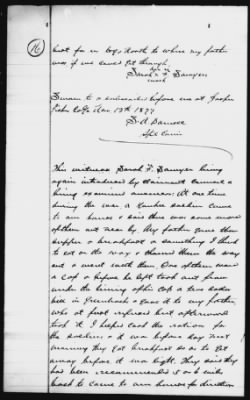 16
but far in boys South to where my father
was if we ever got through
Sarah F. Sawyer
mark
Sworn to & subscribed before me at Jasper
Ala Dec 13th 1877
Spl Comr
This witness Sarah F. Sawyer being
again introduced by claimant cannot a
being examined answers: At one time
during the war a Yankee soldier came
to our house & said there were some more
of them out near by. My father gave them
supper & breakfast & something I think
to eat on the way & showed them the way
out & went with them. One of them wore
a cap & before he left took out from
under the lining of his cap a two dollar
bill in Greenback & gave it to my father,
who at first refused but afterwards
took it. I helped cook the ration for
the soldiers & it was before day next
morning they got breakfast so as to get
away before it was light. They said they
had been recommended 5 or 6 miles
back to come to our house for direction